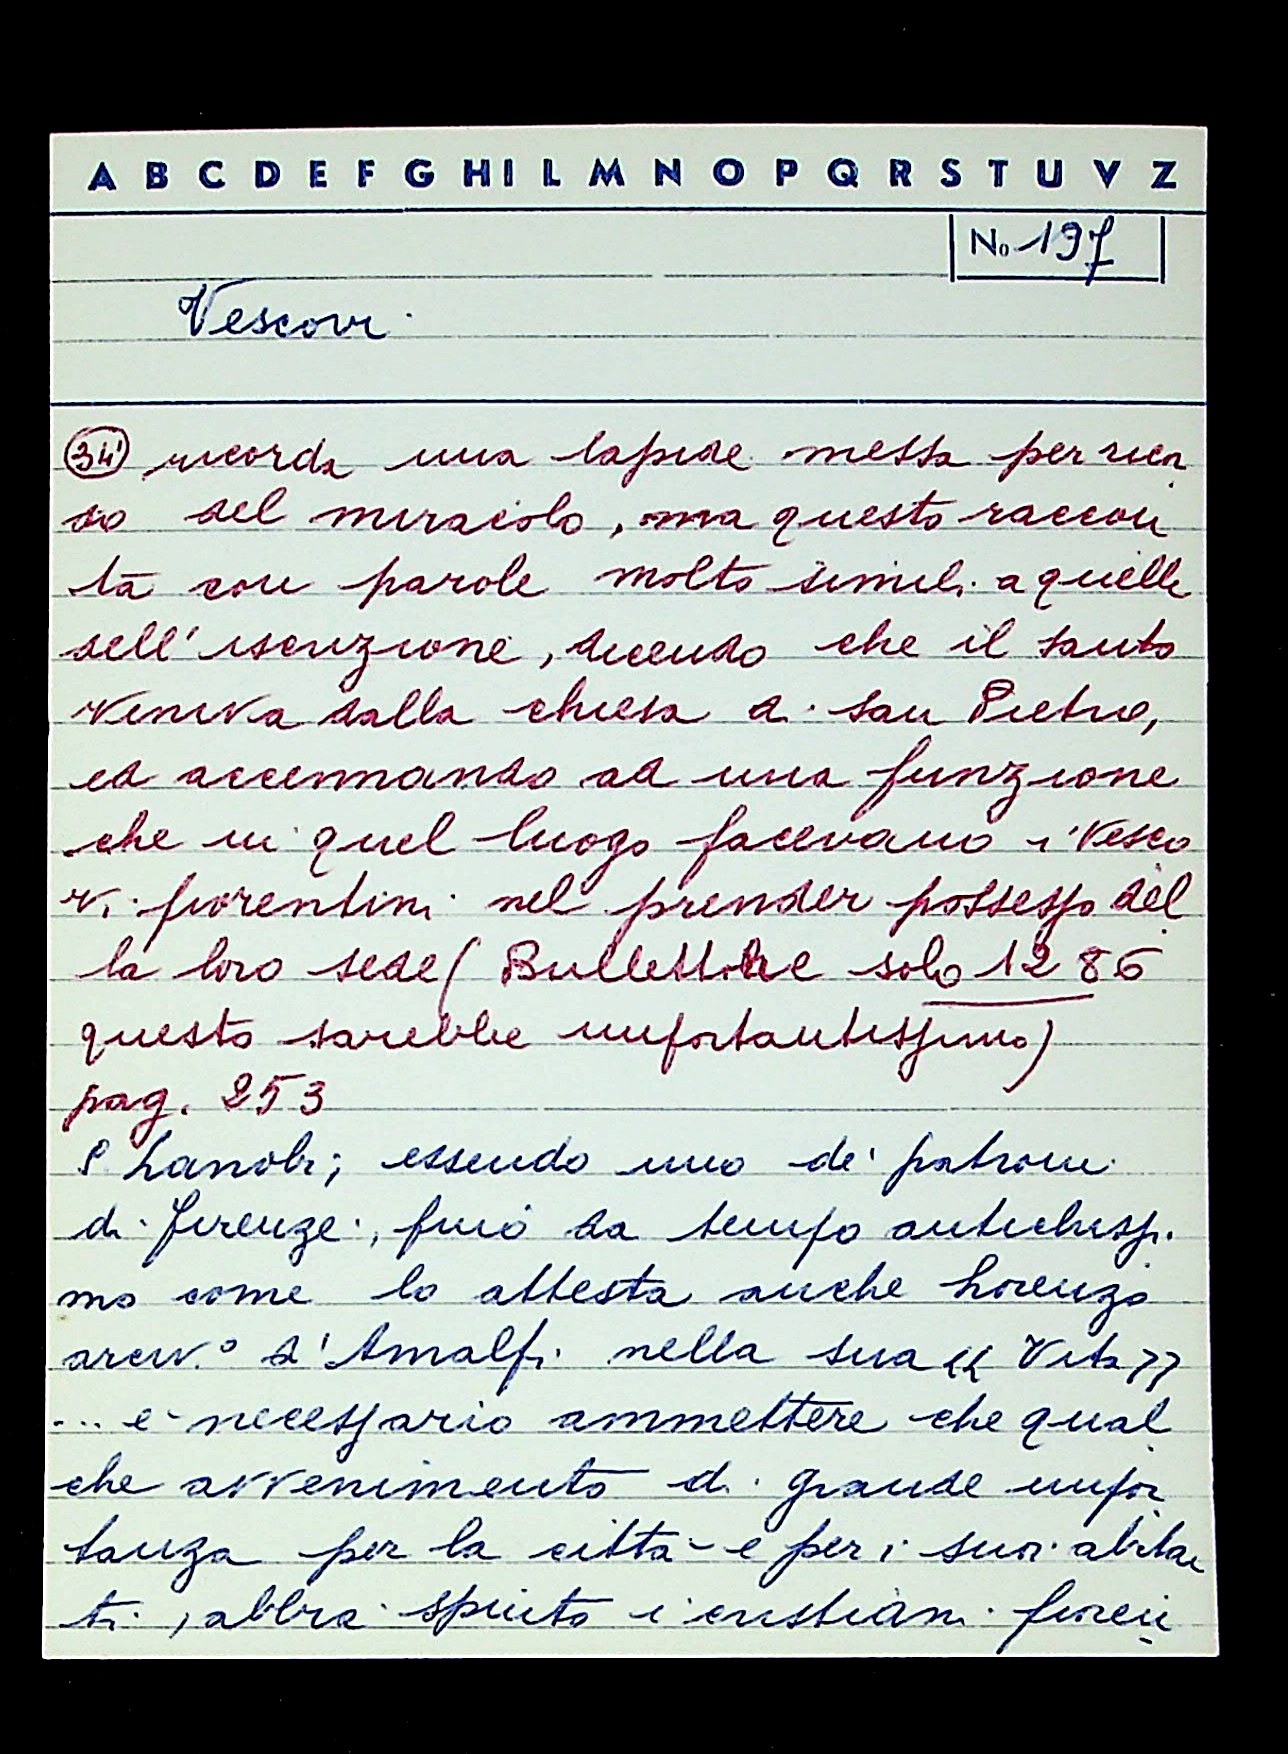 A B C D E F G H I L M N O P Q R S T U V Z
No 197
Vescovi
34' ricorda una lapide messa per ricor
do del miracolo, ma questo raccon
ta con parole molto simili a quelle
dell'iscrizione, dicendo che il santo
veniva dalla chiesa di san Pietro,
ed accennando ad una funzione
che in quel luogo facevano i Vesco
vi fiorentini nel prender possesso del
la loro sede (Bullettone solo 1286
questo sarebbe importantissimo)
pag. 253
S. Zanobi; essendo uno de' patroni
di Firenze, fino da tempo antichissi
mo come lo attesta anche Lorenzo
arciv.° d'Amalfi nella sua << Vita >>
... è necessario ammettere che qual
che avvenimento di grande impor
tanza per la città e per i suoi abitan
ti, abbia spinto i cristiani fioren